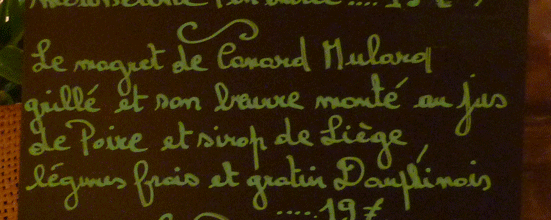 mousseline Pur beurre .... 19 €
Le magret de Canard Mulard
grillé et son beurre monté au jus
de Poire et sirop de Liège,
légumes frais et gratin Dauphinois
.....19 €